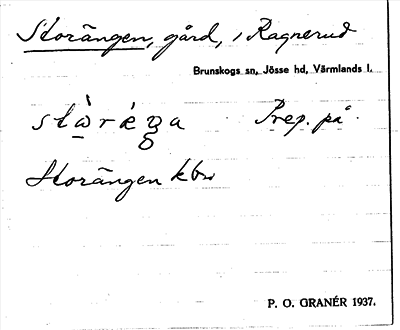 Storängen, gård, i Ragnerud
Brunskogs sn, Jösse hd, Värmlands l.
Prep. på
Storängen kbr
P. O. GRANÉR 1937.